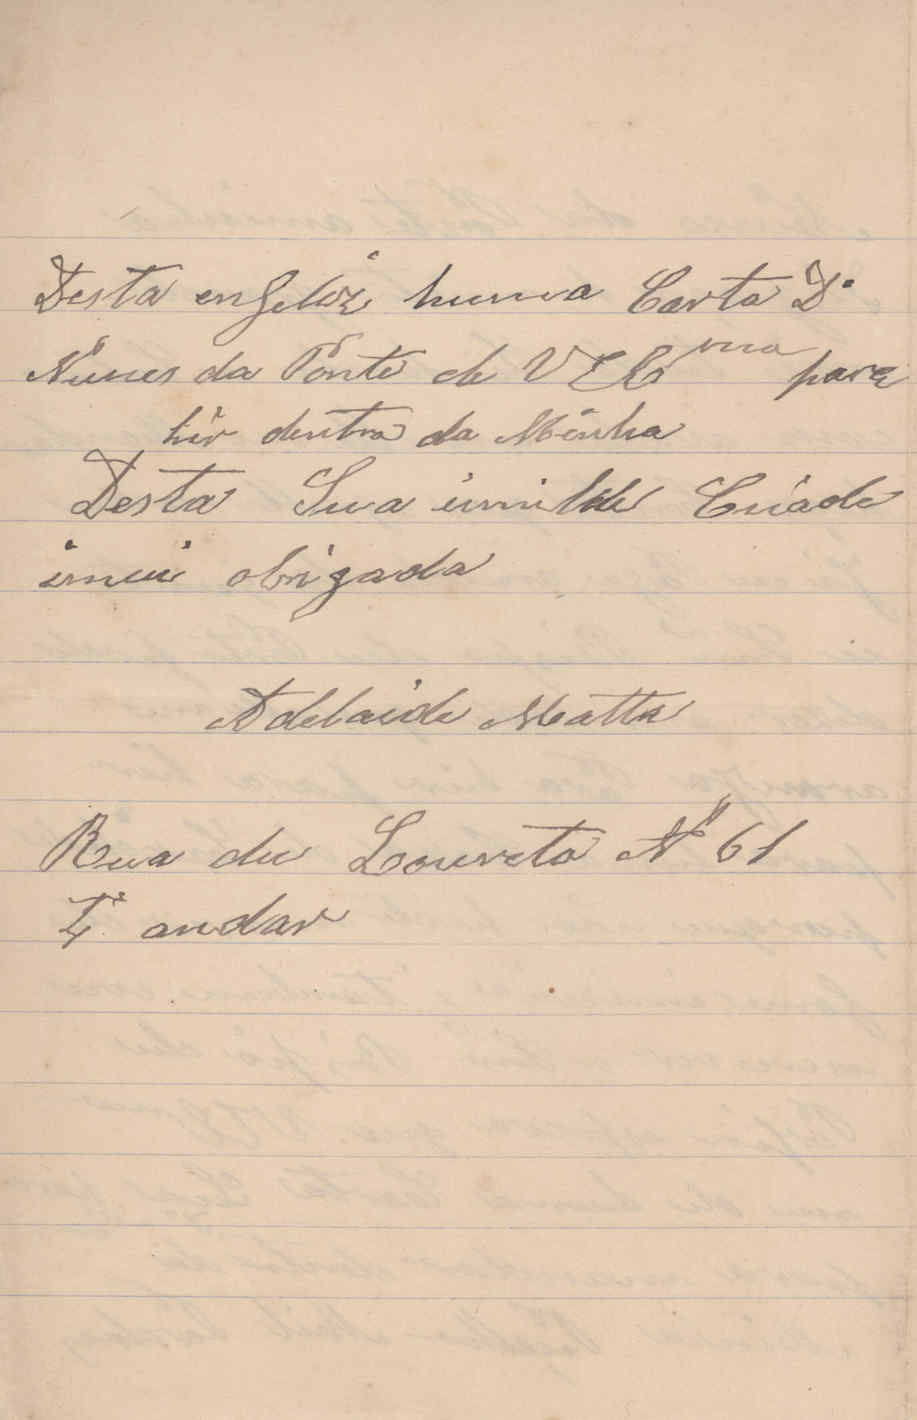 Desta enfeliz huma Carta D.
Nunes da Ponte de V Ex^ma para
hir dentra da Minha
Desta Sua umilde Criada
imui obrigada
Adelaide Matta
Rua du Loureto Nº 61
4º andar